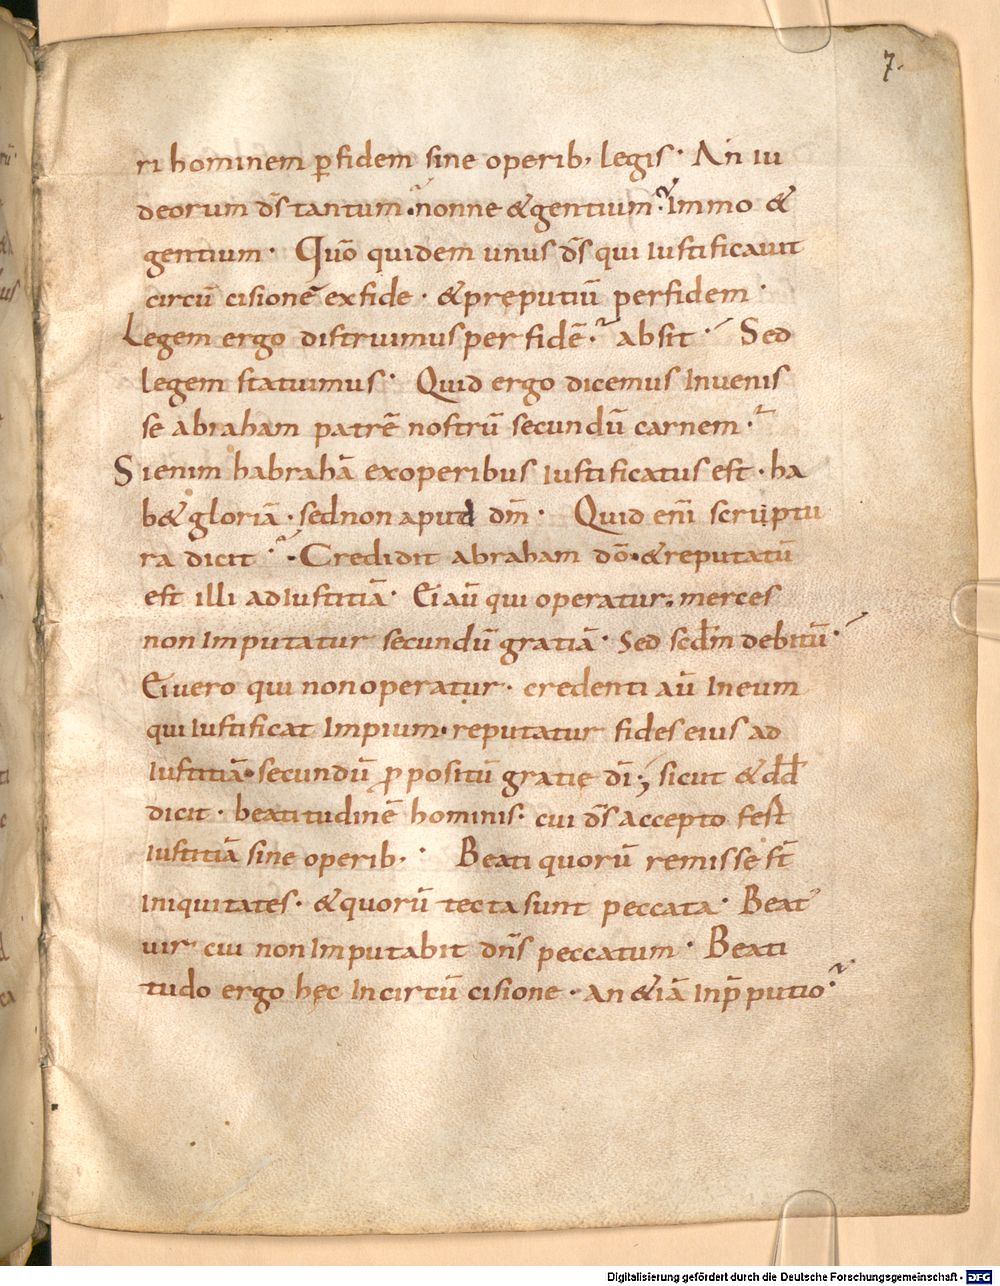 7.
ri hominem ꝑ fidem sine operib; legis · An iu
deorum d̄s tantum · nonne & gentium · Immo &
gentium · Quō quidem unus d̄s qui iustificauit
circū cisionē ex fide · & pręputiū per fidem ·
Legem ergo distruimus per fidē · absit · Sed
legem statuimus · Quid ergo dicemus Inuenis
se abraham patrē nostrū secundū carnem ·
Si enim habrahā ex operibus iustificatus est · ha
b& gloriā · sed non aput dm̄ · Quid enī scriptu
ra dicit · Credidit abraham dō · & reputatū
est illi ad iustitiā · Ei aū qui operatur · merces
non Imputatur secundū gratiā · Sed scđm debitū ·
Ei uero qui non operatur · credenti aū In eum
qui iustificat Impium · reputatur fides eius ad
iustitiā · secundū ꝓpositū gratię dī ; sicut & dđ
dicit · beatitudinē hominis · cui d̄s accepto fert
iustitiā sine operib · Beati quorū remisse st̄
iniquitates · & quorū tecta sunt peccata · Beat
uir cui non Imputabit dn̄s peccatum · Beati
tudo ergo hęc In circū cisione · an & iā In p̄putio
Digitalisierung gefördert durch die Deutsche Forschungsgemeinschaft - DFG